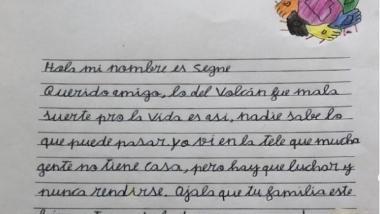 Hola mi nombre es Segne
Querido amigo, lo del Volcán fue mala
suerte pro la vida es asi, nadie sabe lo
que puede pasar yo vi en la tele que mucha
gente no tiene casa, pero hay que luchar y
nunca rendirse. Ojala que tu familia este